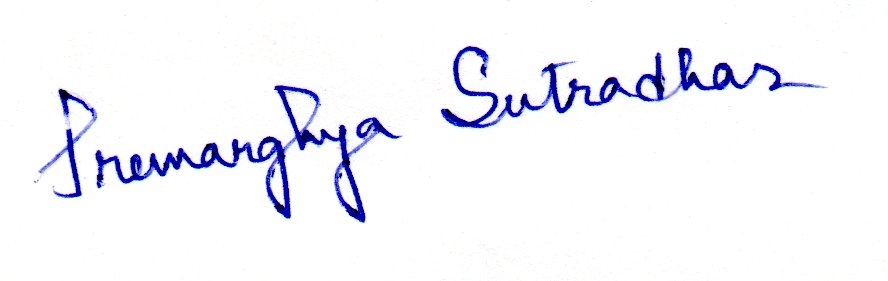 Premarghya Sutradhar